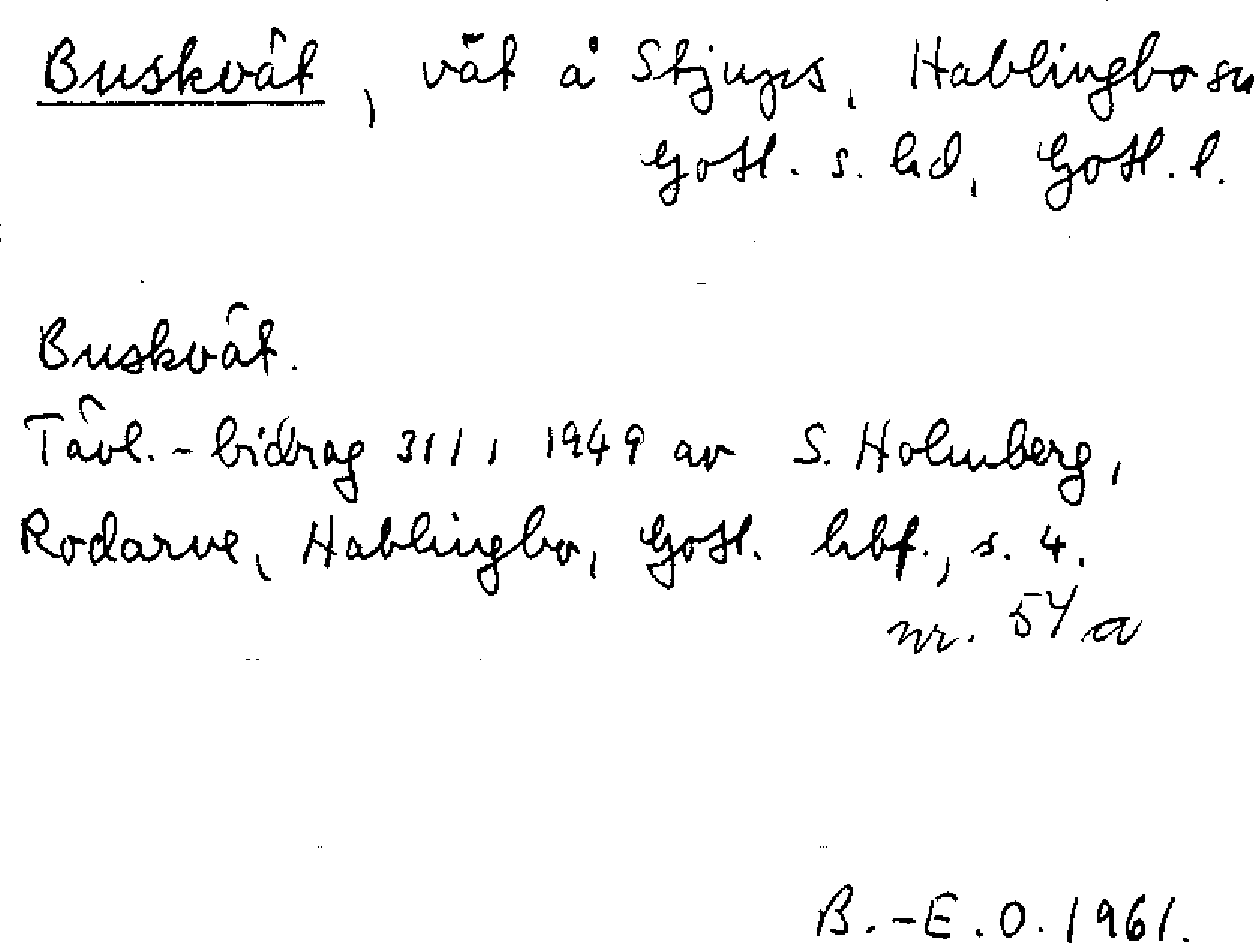 Buskvät, vät å Stjups, Hablingbo sn
Gotl. s. hd, Gotl. l.
Buskvät.
Tävl.-bidrag 31/1 1949 av S. Holmberg,
Rodarve, Hablingbo, Gotl. hbf., s. 4.
nr. 54 a
B.-E. O. 1961.